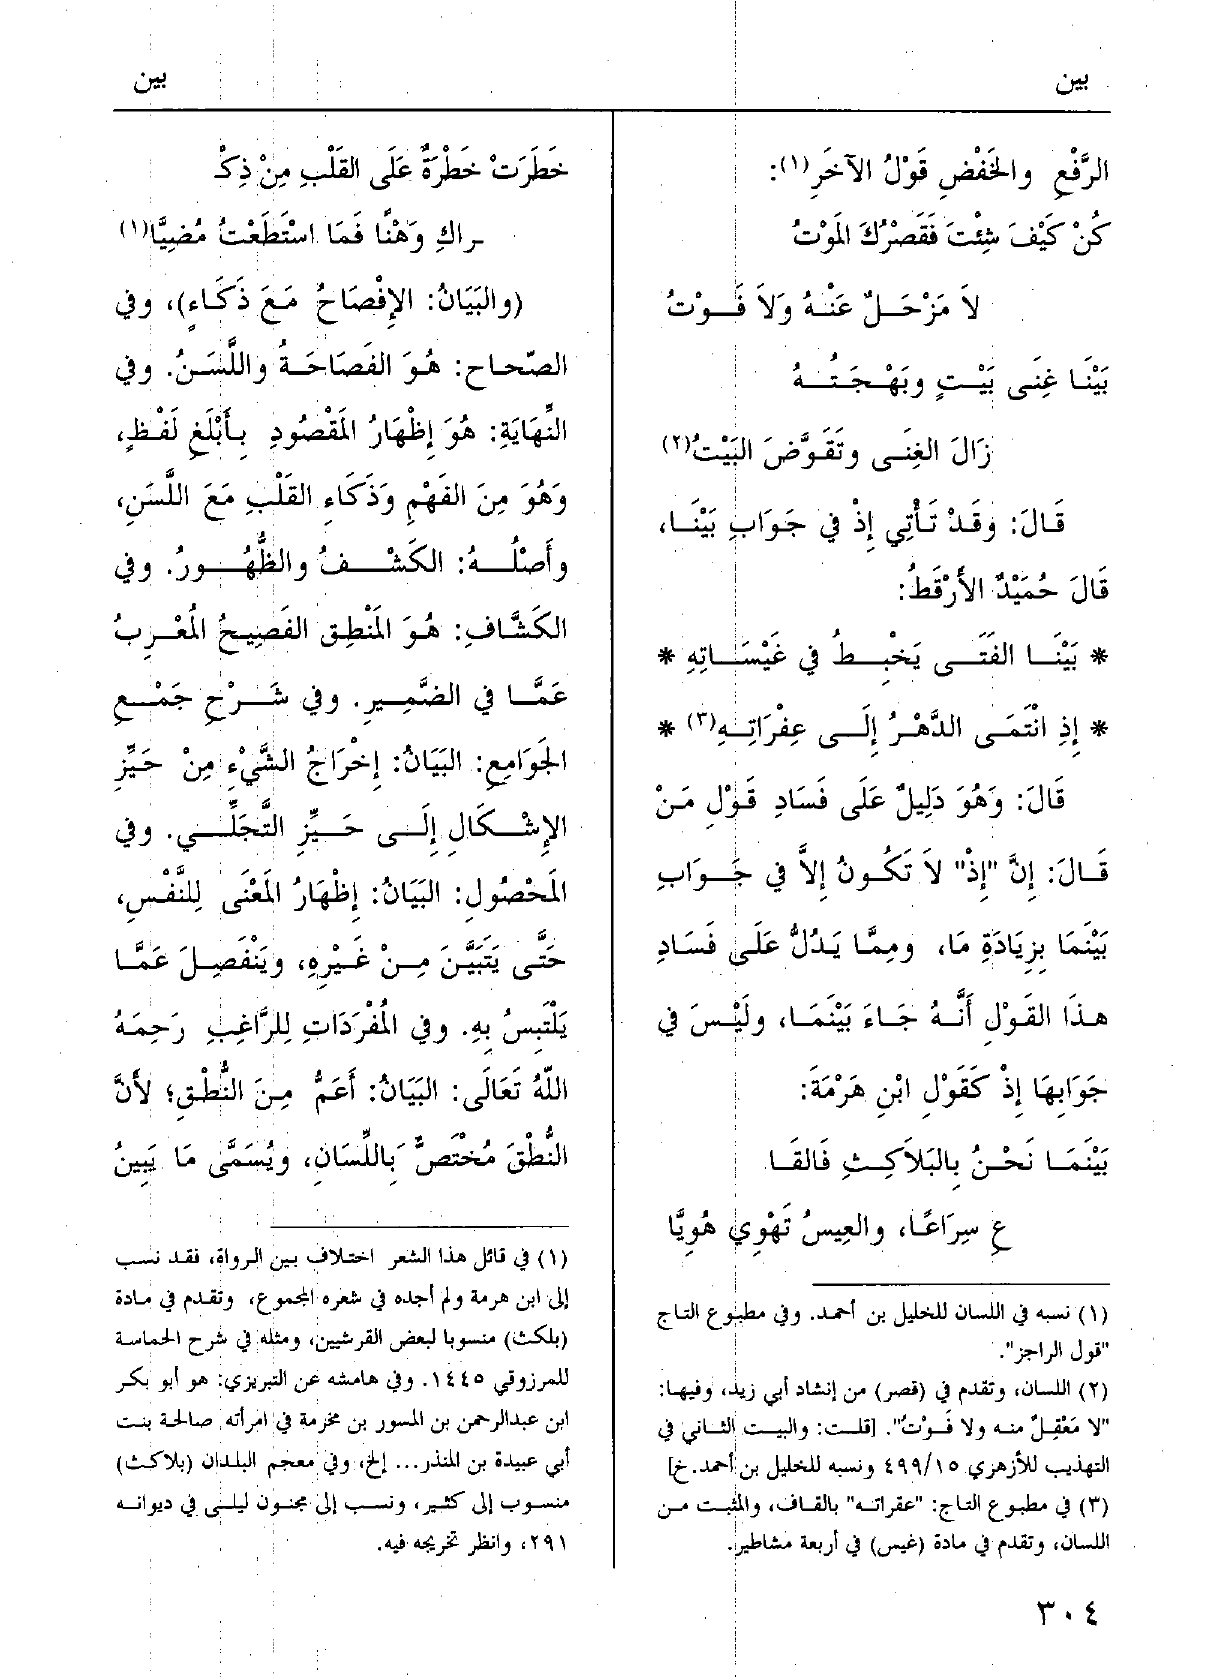 بين
بين
الرَّفْعِ والخَفْضِ قَوْلُ الآخَرِ(١):
كُنْ كَيْفَ شِئْتَ فَقَصْرُكَ المَوْتُ
لاَ مَزْحَلٌ عَنْهُ وَلاَ فَوْتُ
بَيْنَا غِنَى بَيْتٍ وبَهْجَتُهُ
زَالَ الغِنَى وتَقَوَّضَ البَيْتُ(٢)
قَالَ: وَقَدْ تَأْتِي إِذْ فِي جَوَابِ بَيْنَا،
قَالَ حُمَيْدٌ الأَرْقَطُ:
* بَيْنَا الفَتَى يَخْبِطُ فِي غَيْسَاتِهِ *
* إِذِ انْتَمَى الدَّهْرُ إِلَى عِفْرَاتِهِ(٣) *
قَالَ: وَهُوَ دَلِيلٌ عَلَى فَسَادِ قَوْلِ مَنْ
قَالَ: إِنَّ "إِذْ" لاَ تَكُونُ إِلاَّ فِي جَوَابِ
بَيْنَمَا بِزِيَادَةِ مَا، ومِمَّا يَدُلُّ عَلَى فَسَادِ
هذَا القَوْلِ أَنَّهُ جَاءَ بَيْنَمَا، ولَيْسَ فِي
جَوَابِهَا إِذْ كَقَوْلِ ابْنِ هَرْمَةَ:
بَيْنَمَا نَحْنُ بِالبَلاَكِثِ فَالقَا
عِ سِرَاعًا، والعِيسُ تَهْوِي هُوِيًّا
(١) نسبه في اللسان للخليل بن أحمد. وفي مطبوع التاج
"قول الراجز".
(٢) اللسان، وتقدم في (قصر) من إنشاد أبي زيد، وفيها:
"لا مَعْقِلٌ منه ولا فَوْتُ". [قلت: والبيت الثاني في
التهذيب للأزهري ٤٩٩/١٥ ونسبه للخليل بن أحمد.خ]
(٣) في مطبوع التاج: "عقراته" بالقاف، والمثبت من
اللسان، وتقدم في مادة (غيس) في أربعة مشاطير.
خَطَرَتْ خَطْرَةٌ عَلَى القَلْبِ مِنْ ذِكْـ
ـرَاكِ وَهْنًا فَمَا اسْتَطَعْتُ مُضِيًّا(١)
(والبَيَانُ: الإِفْصَاحُ مَعَ ذَكَاءٍ)، وفِي
الصِّحاح: هُوَ الفَصَاحَةُ واللَّسَنُ. وفِي
النِّهَايَةِ: هُوَ إِظْهَارُ المَقْصُودِ بِأَبْلَغِ لَفْظٍ،
وَهُوَ مِنَ الفَهْمِ وَذَكَاءِ القَلْبِ مَعَ اللَّسَنِ،
وأَصْلُهُ: الكَشْفُ والظُّهُورُ. وفِي
الكَشَّافِ: هُوَ المَنْطِقُ الفَصِيحُ المُعْرِبُ
عَمَّا فِي الضَّمِيرِ. وفِي شَرْحِ جَمْعِ
الجَوَامِعِ: البَيَانُ: إِخْرَاجُ الشَّيْءِ مِنْ حَيِّزِ
الإِشْكَالِ إِلَى حَيِّزِ التَّجَلِّي. وفِي
المَحْصُولِ: البَيَانُ: إِظْهَارُ المَعْنَى لِلنَّفْسِ،
حَتَّى يَتَبَيَّنَ مِنْ غَيْرِهِ، ويَنْفَصِلَ عَمَّا
يَلْتَبِسُ بِهِ. وفِي المُفْرَدَاتِ لِلرَّاغِبِ رَحِمَهُ
اللّهُ تَعَالَى: البَيَانُ: أَعَمُّ مِنَ النُّطْقِ؛ لأَنَّ
النُّطْقَ مُخْتَصٌّ بِاللِّسَانِ، ويُسَمَّى مَا يَبِينُ
(١) في قائل هذا الشعر اختلاف بين الرواة، فقد نسب
إلى ابن هرمة ولم أجده في شعره المجموع، وتقدم في مادة
(بلكث) منسوبا لبعض القرشيين، ومثله في شرح الحماسة
للمرزوقي ١٤٤٥. وفي هامشه عن التبريزي: هو أبو بكر
ابن عبدالرحمن بن المسور بن مخرمة في امرأته صالحة بنت
أبي عبيدة بن المنذر... إلخ، وفي معجم البلدان (بلاكث)
منسوب إلى كثير، ونسب إلى مجنون ليلى في ديوانه
٢٩١، وانظر تخريجه فيه.
٣٠٤